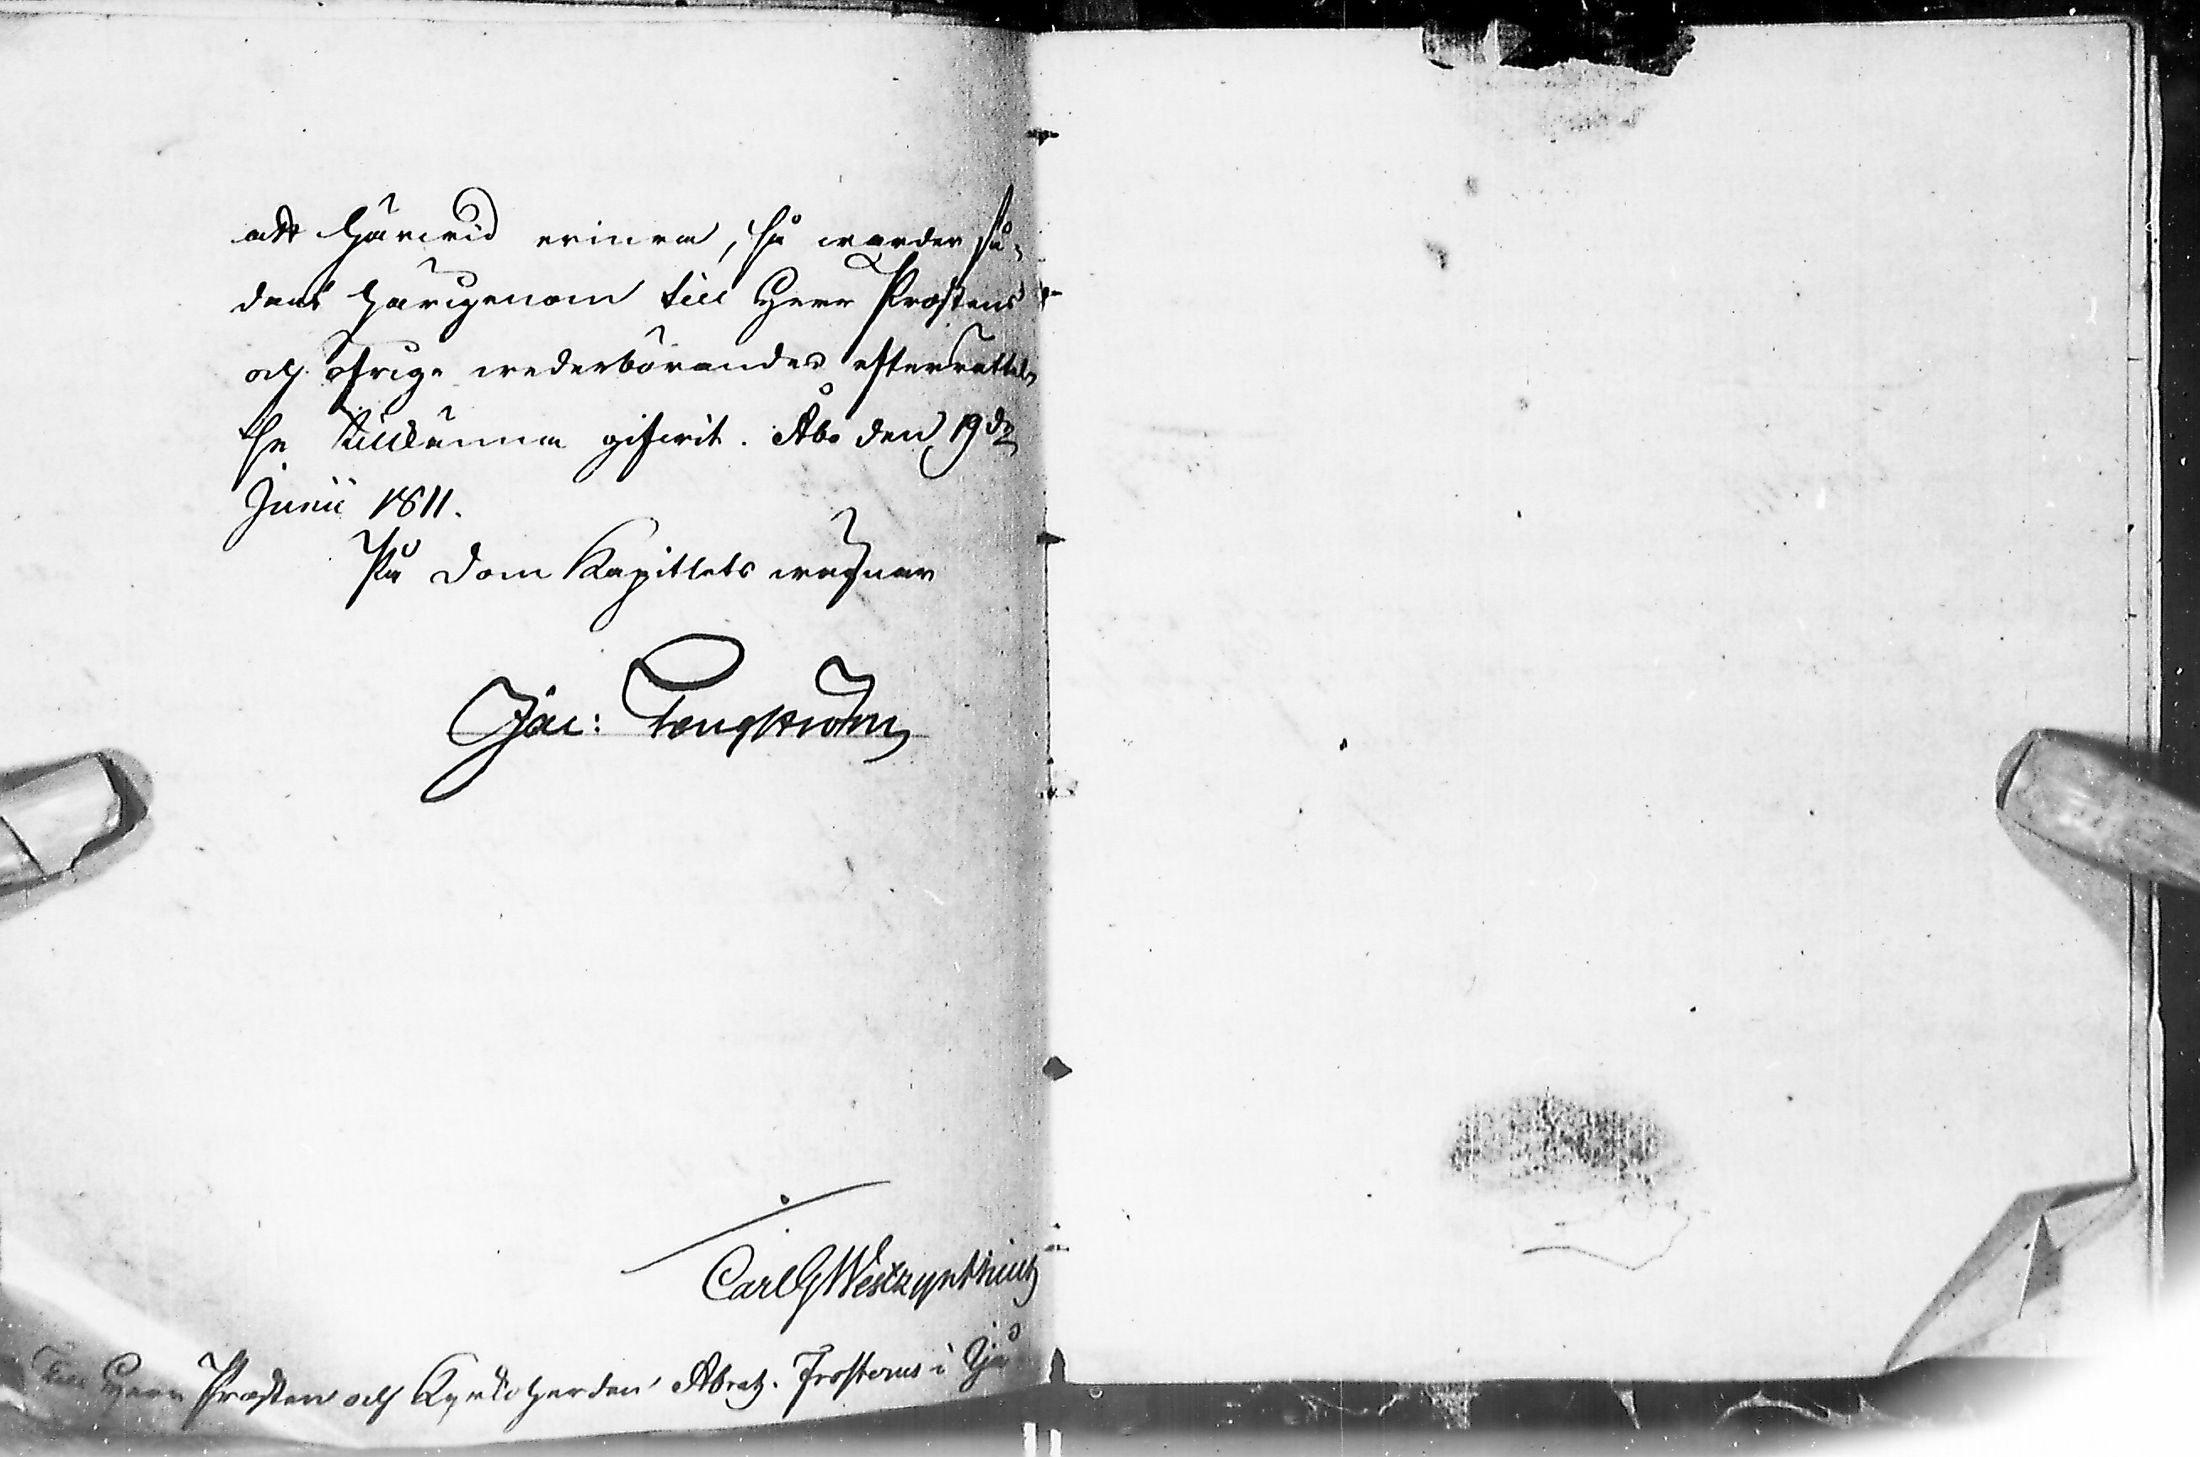 att härvid erinra, så warder så-
dant härigenom till Herr Prostens
och öfrige wederbörandes efterrättel-
se tillkänna gifwit. Åbo den 19de
Junii 1811.
På Dom Kapitlets wägnar
Jac: Tengström
Carl G Westzynthius
Till Herr Prosten och Kyrkoherden Abrah. Frosterus i Ijå